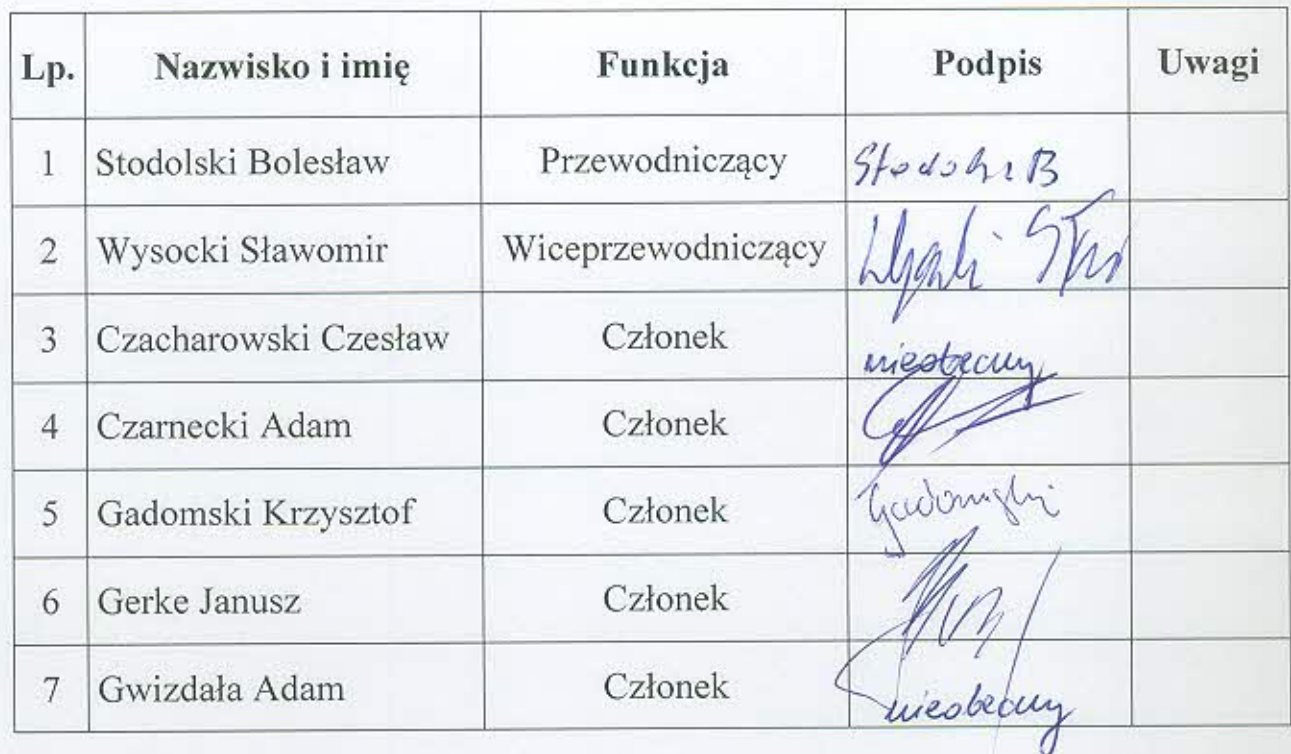 Lp. Nazwisko i imię Funkcja Podpis Uwagi
1 Stodolski Bolesław Przewodniczący
2 Wysocki Sławomir Wiceprzewodniczący
3 Czacharowski Czesław Członek nieobecny
4 Czarnecki Adam Członek
5 Gadomski Krzysztof Członek Gadomski
6 Gerke Janusz Członek
7 Gwizdała Adam Członek nieobecny